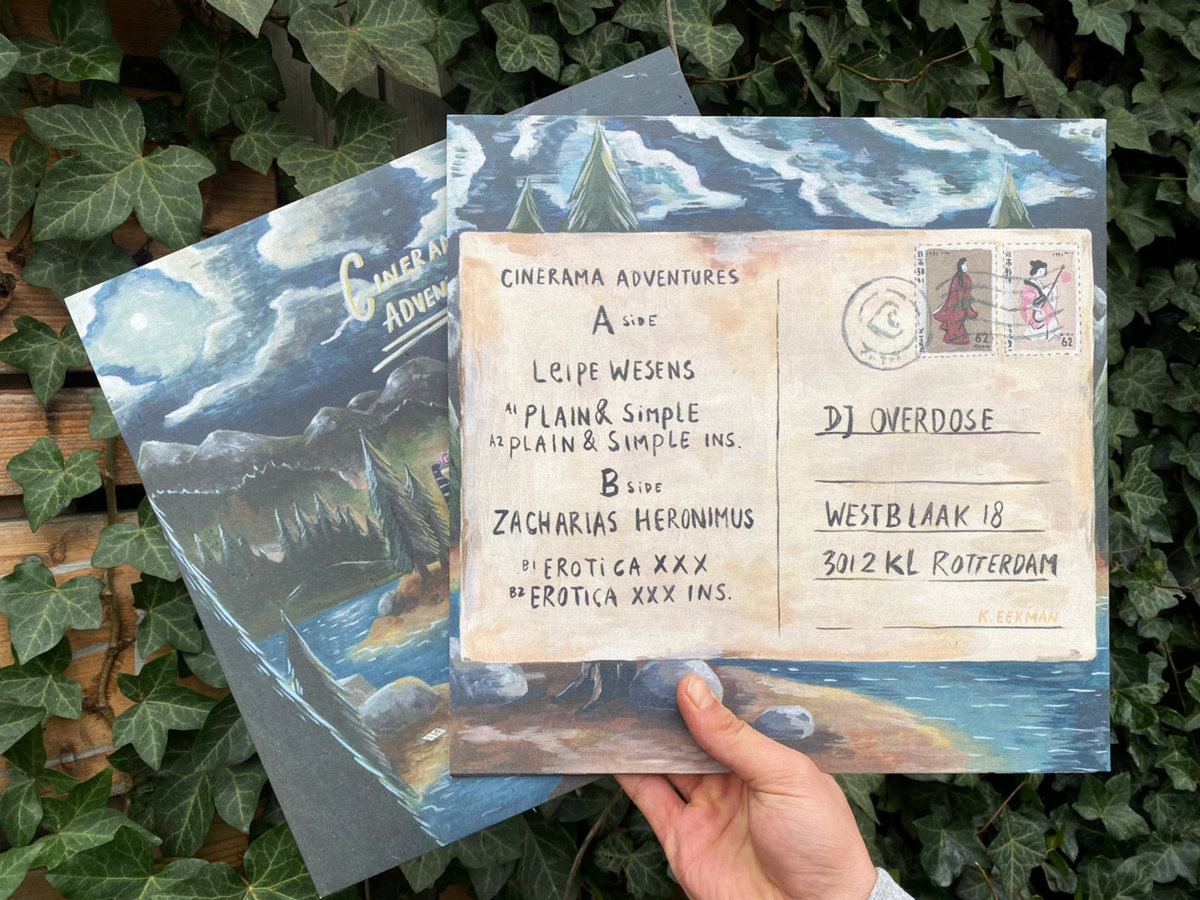 CINERAMA
ADVEN
CINERAMA ADVENTURES
A SIDE
LEIPE WESENS
A1 PLAIN & SIMPLE
A2 PLAIN & SIMPLE INS.
B SIDE
ZACHARIAS HERONIMUS
B1 EROTICA XXX
B2 EROTICA XXX INS.
62
62
DJ OVERDOSE
WESTBLAAK 18
3012 KL ROTTERDAM
K. EEKMAN